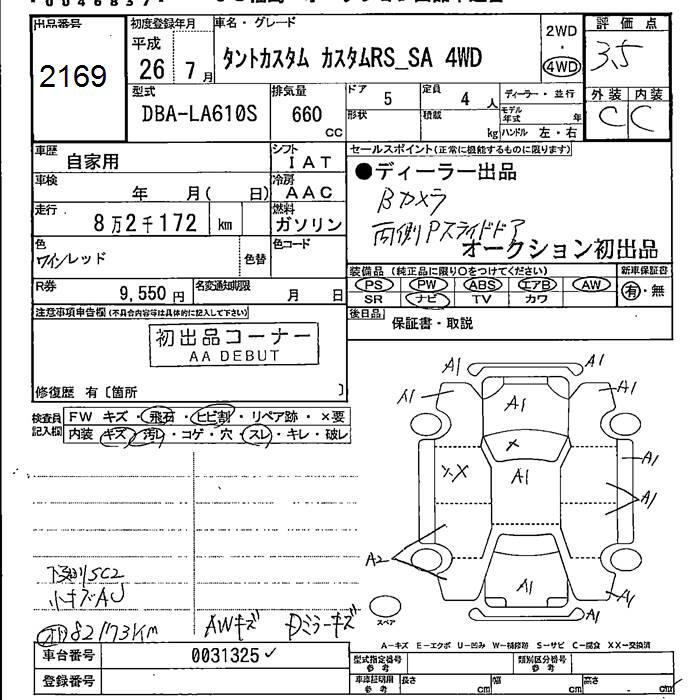 出品番号
2169
初度登録年月
平成
26年7月
車名・グレード
タントカスタム カスタムRS_SA 4WD
2WD
・
4WD
評価点
3.5
外装 内装
C C
型式
DBA-LA610S
排気量
660
cc
ドア
5
形状
定員
4 人
積載
kg
ディーラー・並行
モデル年式 年
ハンドル 左・右
車歴
自家用
シフト
IAT
車検
年 月( 日)
冷房
AAC
走行
8万2千172 km
燃料
ガソリン
色
ワインレッド
色替
色コード
R券
9,550円
名変通知期限
月 日
セールスポイント(正常に機能するものに限ります)
●ディーラー出品
Bカメラ
両側Pスライドドア
オークション初出品
装備品(純正品に限り○をつけてください)
PS PW ABS エアB AW
SR ナビ TV カワ
新車保証書
有・無
後日品
保証書・取説
注意事項申告欄(不具合内容等は具体的に記入して下さい)
初出品コーナー
AA DEBUT
修復歴 有〔箇所 〕
検査員記入欄
FW キズ・飛石・ヒビ割・リペア跡・×要
内装 キズ・汚レ・コゲ・穴・スレ・キレ・破レ
A1 A1
A1 A1 A1
×
A1 A1
A1
A2
A1 A1
A1
スペア
小キズAU
82173Km
AWキズ
Dミラーキズ
A-キズ E-エクボ U-凹み W-補修跡 S-サビ C-腐食 XX-交換済
車台番号
0031325
登録番号
型式指定番号
参考
類別区分番号
参考
車庫証明用
参考
長さ cm 幅 cm 高さ cm